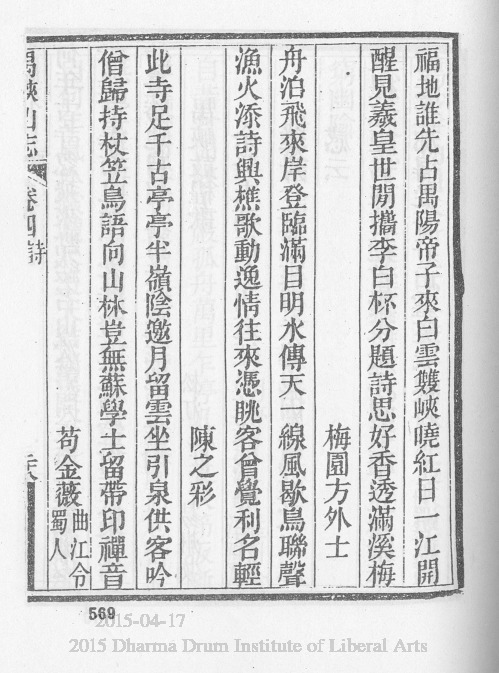 福地誰先占禺陽帝子來白雲雙峽曉紅日一江開
醒見羲皇世閒攜李白杯分題詩思好香透滿溪梅
梅園方外士
舟泊飛來岸登臨滿目明水傳天一線風歇鳥聯聲
漁火添詩興樵歌動逸情往來憑眺客曾覺利名輕
陳之彩
此寺足千古亭亭半嶺陰邀月留雲坐引泉供客吟
僧歸持杖笠鳥語向山林豈無蘇學士留帶印禪音
苟金薇曲江令蜀人
禺峽山志 卷四 詩
569
2015-04-17
2015 Dharma Drum Institute of Liberal Arts